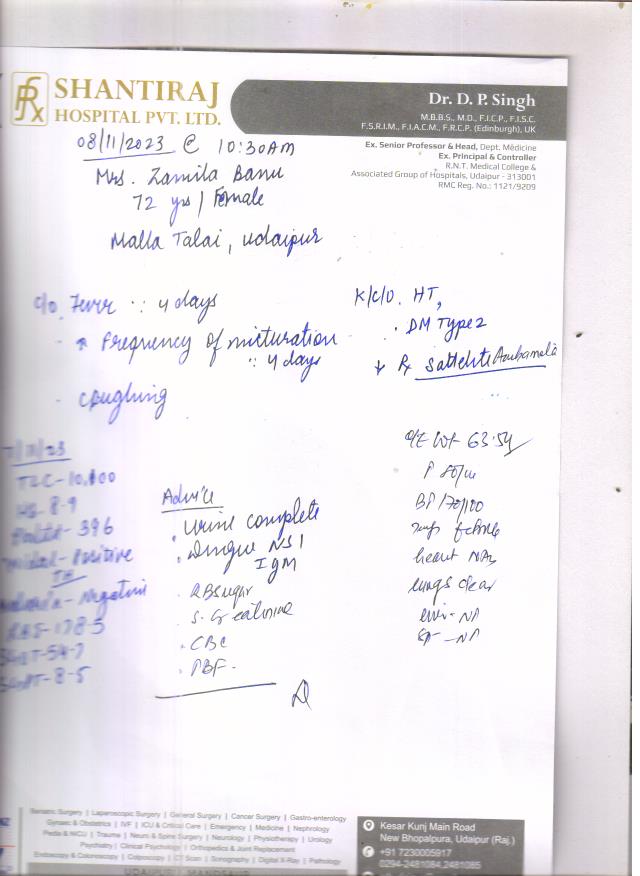 SHANTIRAJ
HOSPITAL PVT. LTD.
Dr. D. P. Singh
M.B.B.S., M.D., F.I.C.P., F.I.S.C.
F.S.R.I.M., F.I.A.C.M., F.R.C.P. (Edinburgh), UK
Ex. Senior Professor & Head, Dept. Medicine
Ex. Principal & Controller
R.N.T. Medical College &
Associated Group of Hospitals, Udaipur - 313001
RMC Reg. No.: 1121/9209
08/11/2023 @ 10:30AM
Mrs. Zamila Banu
72 yrs / Female
Malla Talai, udaipur
c/o Fever ∵ 4 days
↑ Frequency of micturation
∵ 4 days
- Coughing
K/C/O. HT,
· DM Type 2
↓ Rx Sattelite
O/E Wt 63.54
P 80/m
BP 170/100
heart NAD
lungs clear
TLC - 10,800
- 8.9
- 396
Widal - Positive
- Negative
RBS - 178.5
SGOT - 54.7
SGPT - 8.5
Advice
· Urine complete
· Dengue NS1
IgM
· RBsugar
· S. Creatinine
· CBC
· PBF.
Bariatric Surgery | Laparoscopic Surgery | General Surgery | Cancer Surgery | Gastro-enterology
Gynaec & Obstetrics | IVF | ICU & Critical Care | Emergency | Medicine | Nephrology
Pedia & NICU | Trauma | Neuro & Spine Surgery | Neurology | Physiotherapy | Urology
Psychiatry | Clinical Psychology | Orthopedics & Joint Replacement
Endoscopy & Colonoscopy | Colposcopy | CT Scan | Sonography | Digital X-Ray | Pathology
Kesar Kunj Main Road
New Bhopalpura, Udaipur (Raj.)
+91 7230005917
0294-2481084,2481085